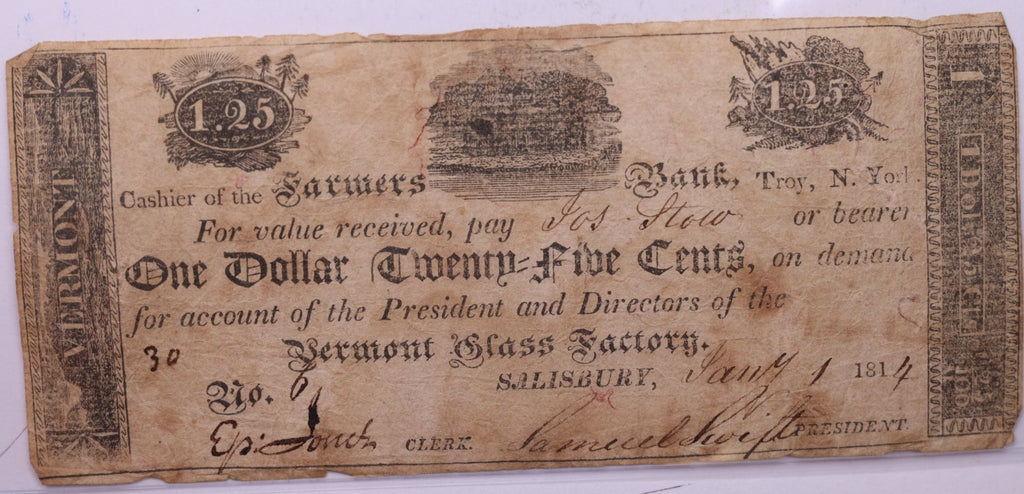 1.25 1.25
VERMONT
Cashier of the Farmers Bank, Troy, N. York.
For value received, pay Jos Stow or bearer
One Dollar Twenty-Five Cents, on demand
for account of the President and Directors of the
30 Vermont Glass Factory.
SALISBURY, Jany 1 1814
No. 6
CLERK. Samuel Swift PRESIDENT.